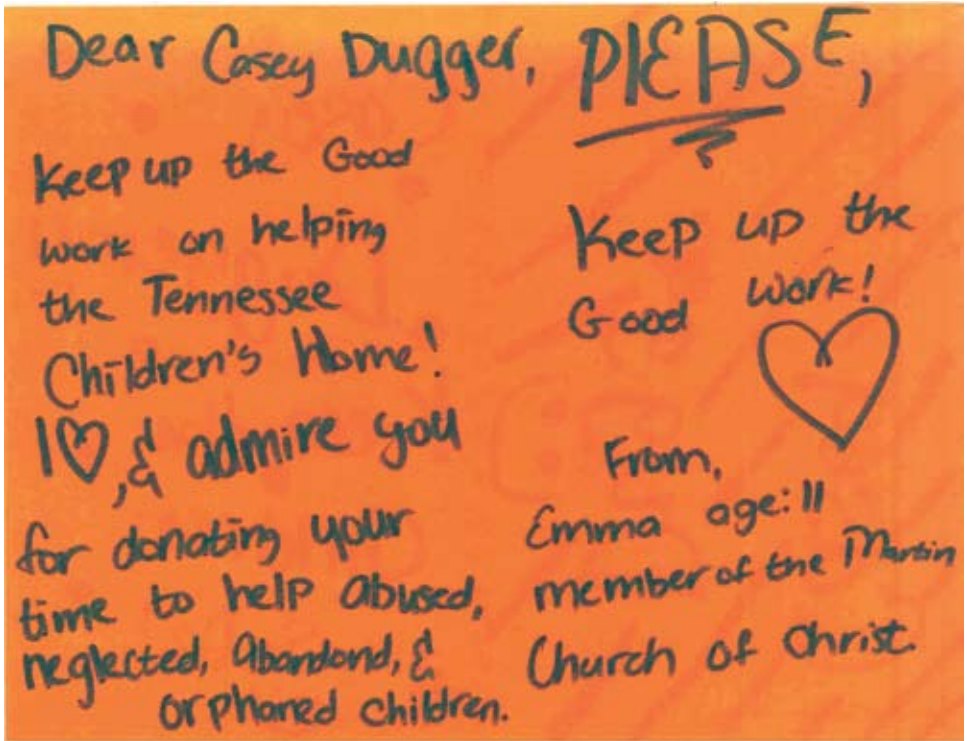 Dear Casey Dugger,
Keep up the Good
work on helping
the Tennessee
Children's Home!
I ♡, & admire you
for donating your
time to help abused,
neglected, abandond, &
orphaned children.
PlEASE,
Keep up the
Good work!
From,
Emma age: 11
member of the Martin
Church of Christ.